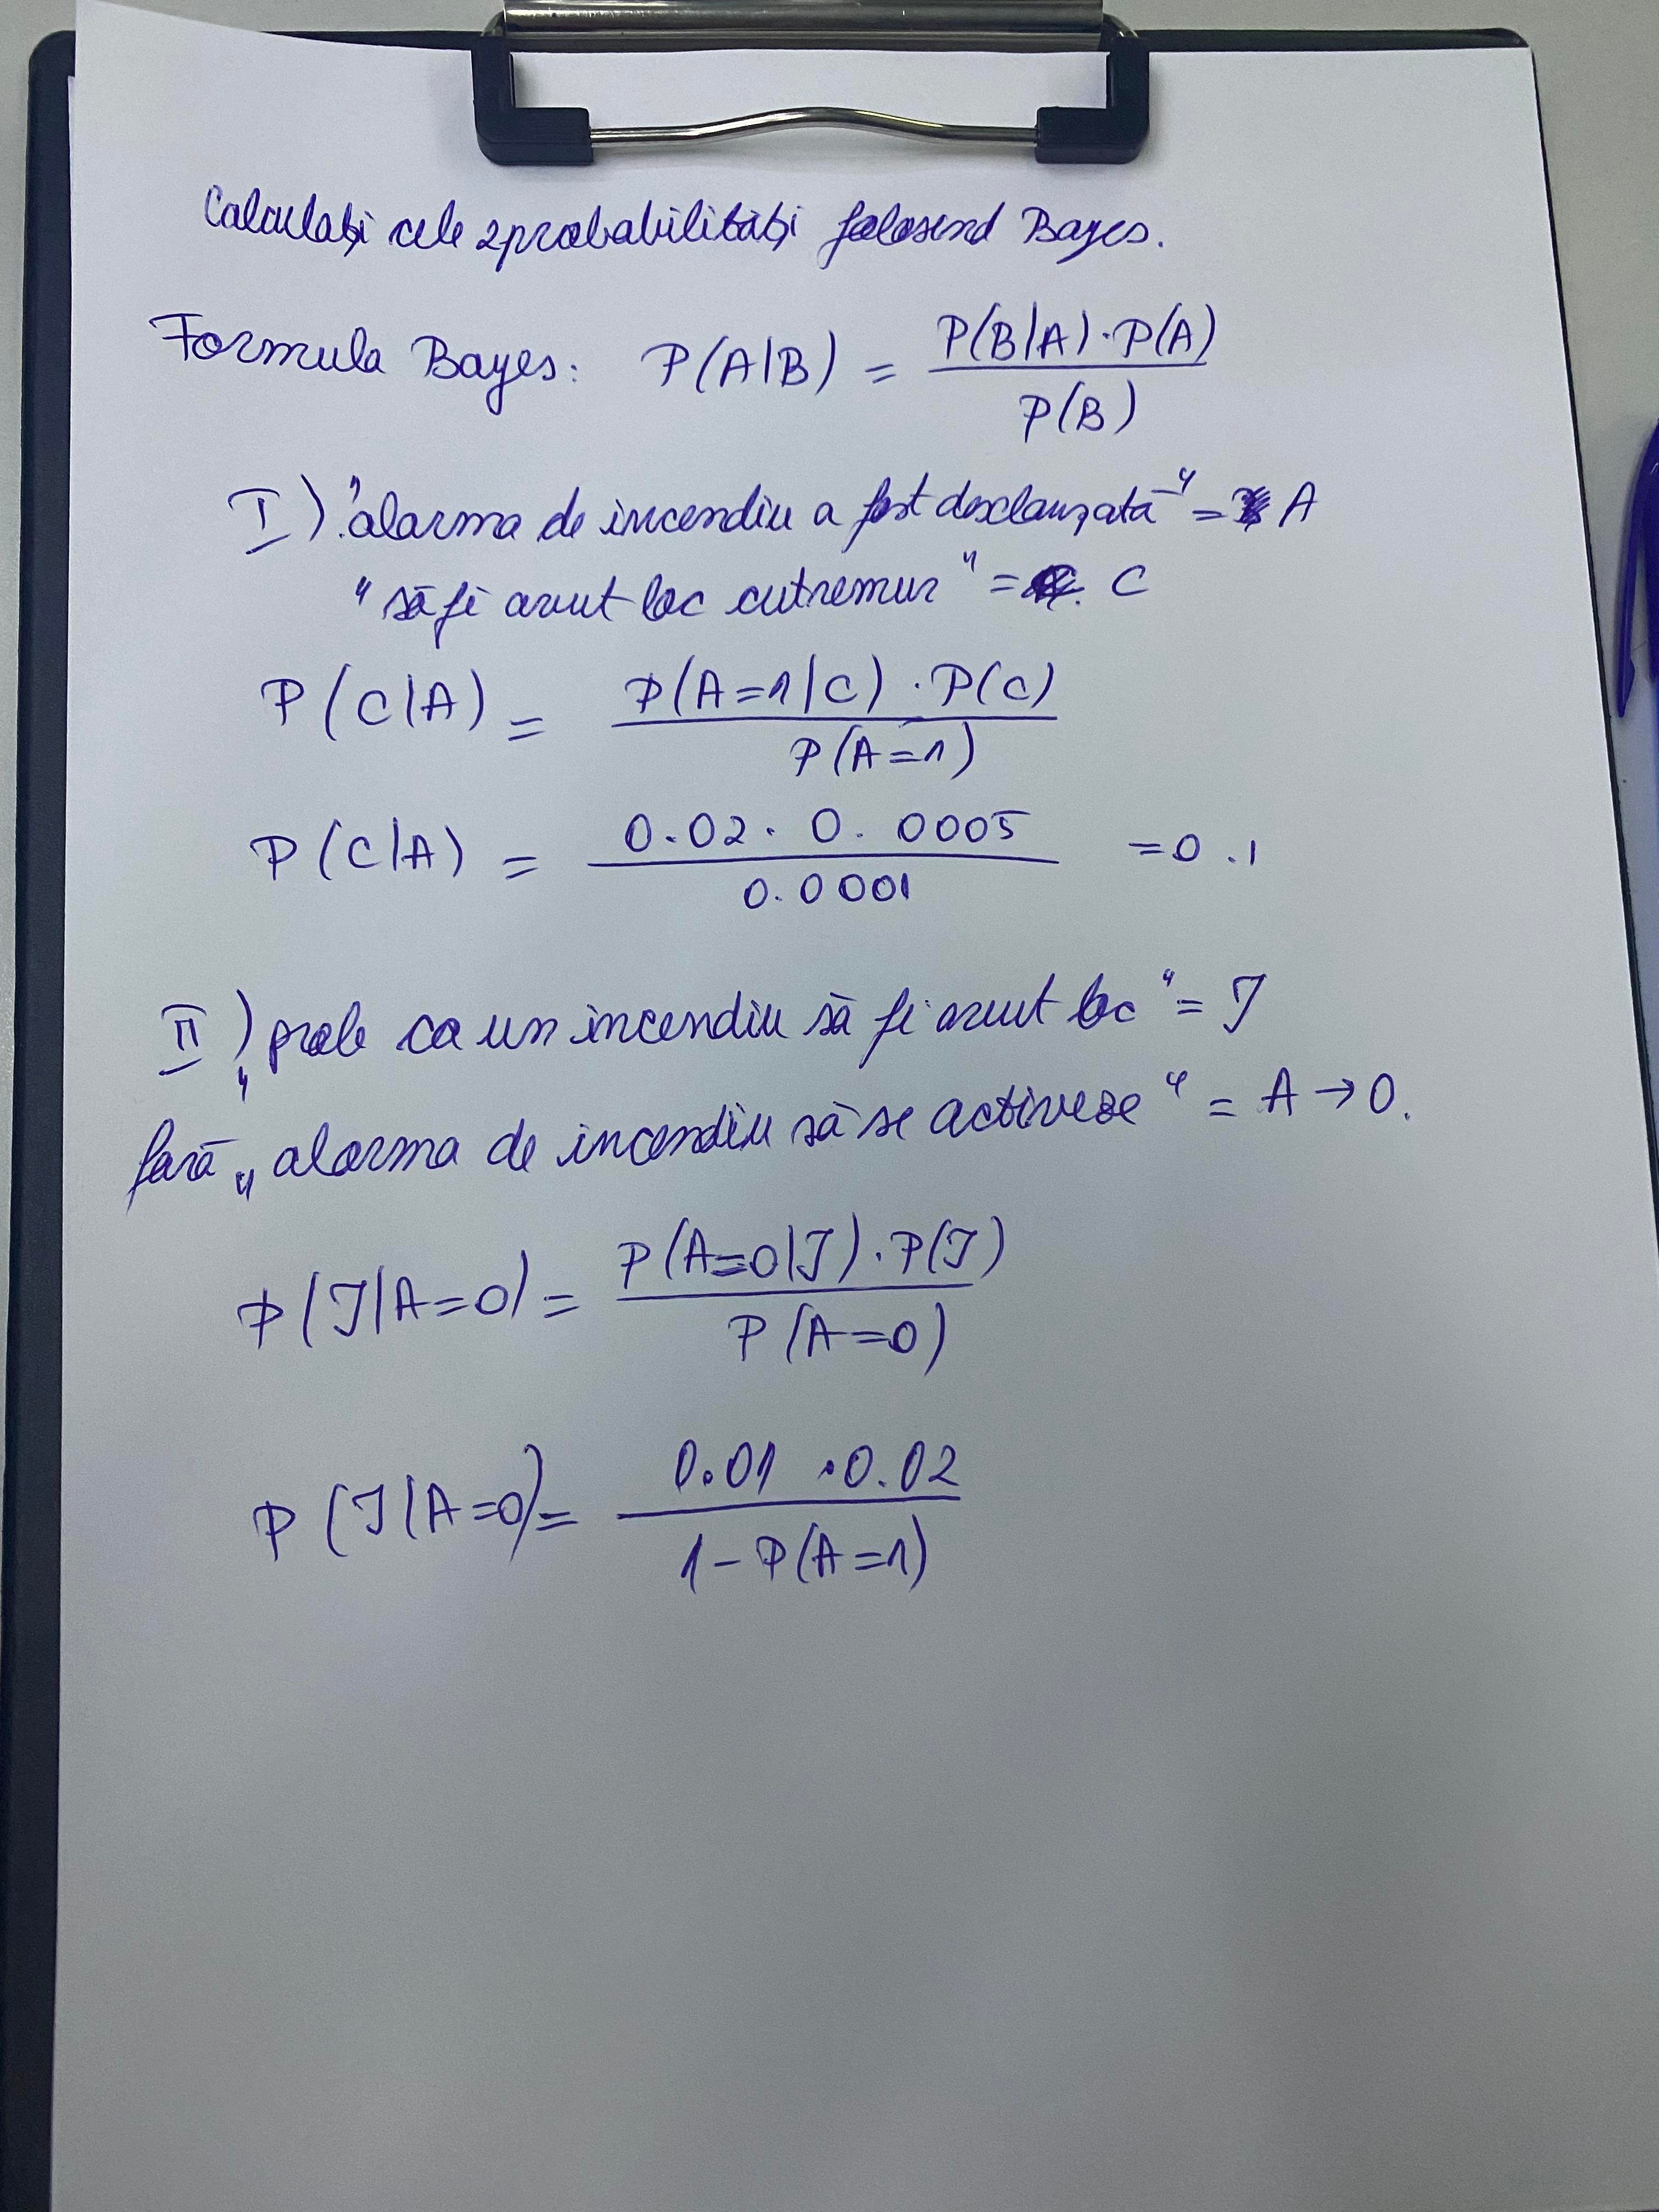 Calculați cele 2 probabilități folosind Bayes.
Formula Bayes: P(A|B) = P(B|A)·P(A) / P(B)
I) "alarma de incendiu a fost declanzată" = A
"să fi avut loc cutremur" = C
P(C|A) = P(A=1|C)·P(C) / P(A=1)
P(C|A) = 0.02 · 0.0005 / 0.0001 = 0.1
II) "prob ca un incendiu să fi avut loc" = J
fară "alarma de incendiu să se activeze" = A → 0.
P(J|A=0) = P(A=0|J)·P(J) / P(A=0)
P(J|A=0) = 0.01 · 0.02 / 1-P(A=1)